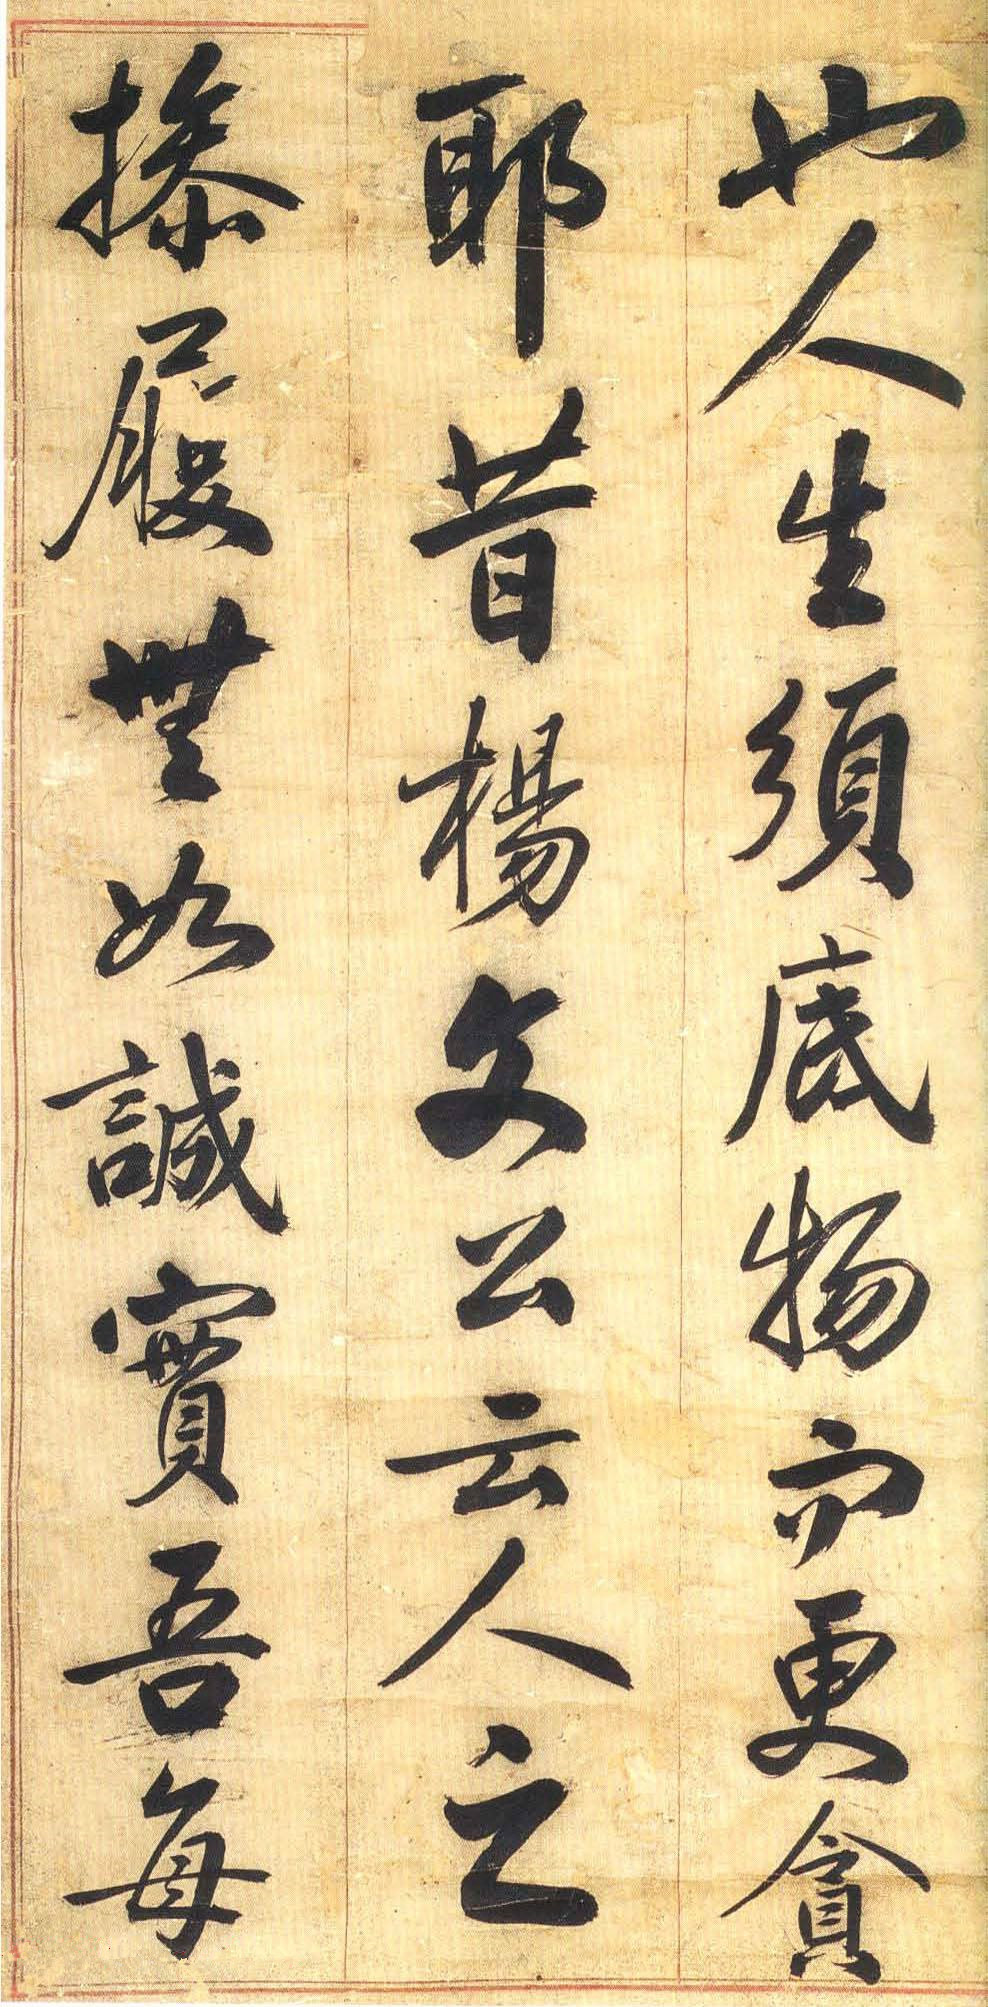 也人生須底物而更貪
耶昔楊文公云人之
操履無如誠實吾每